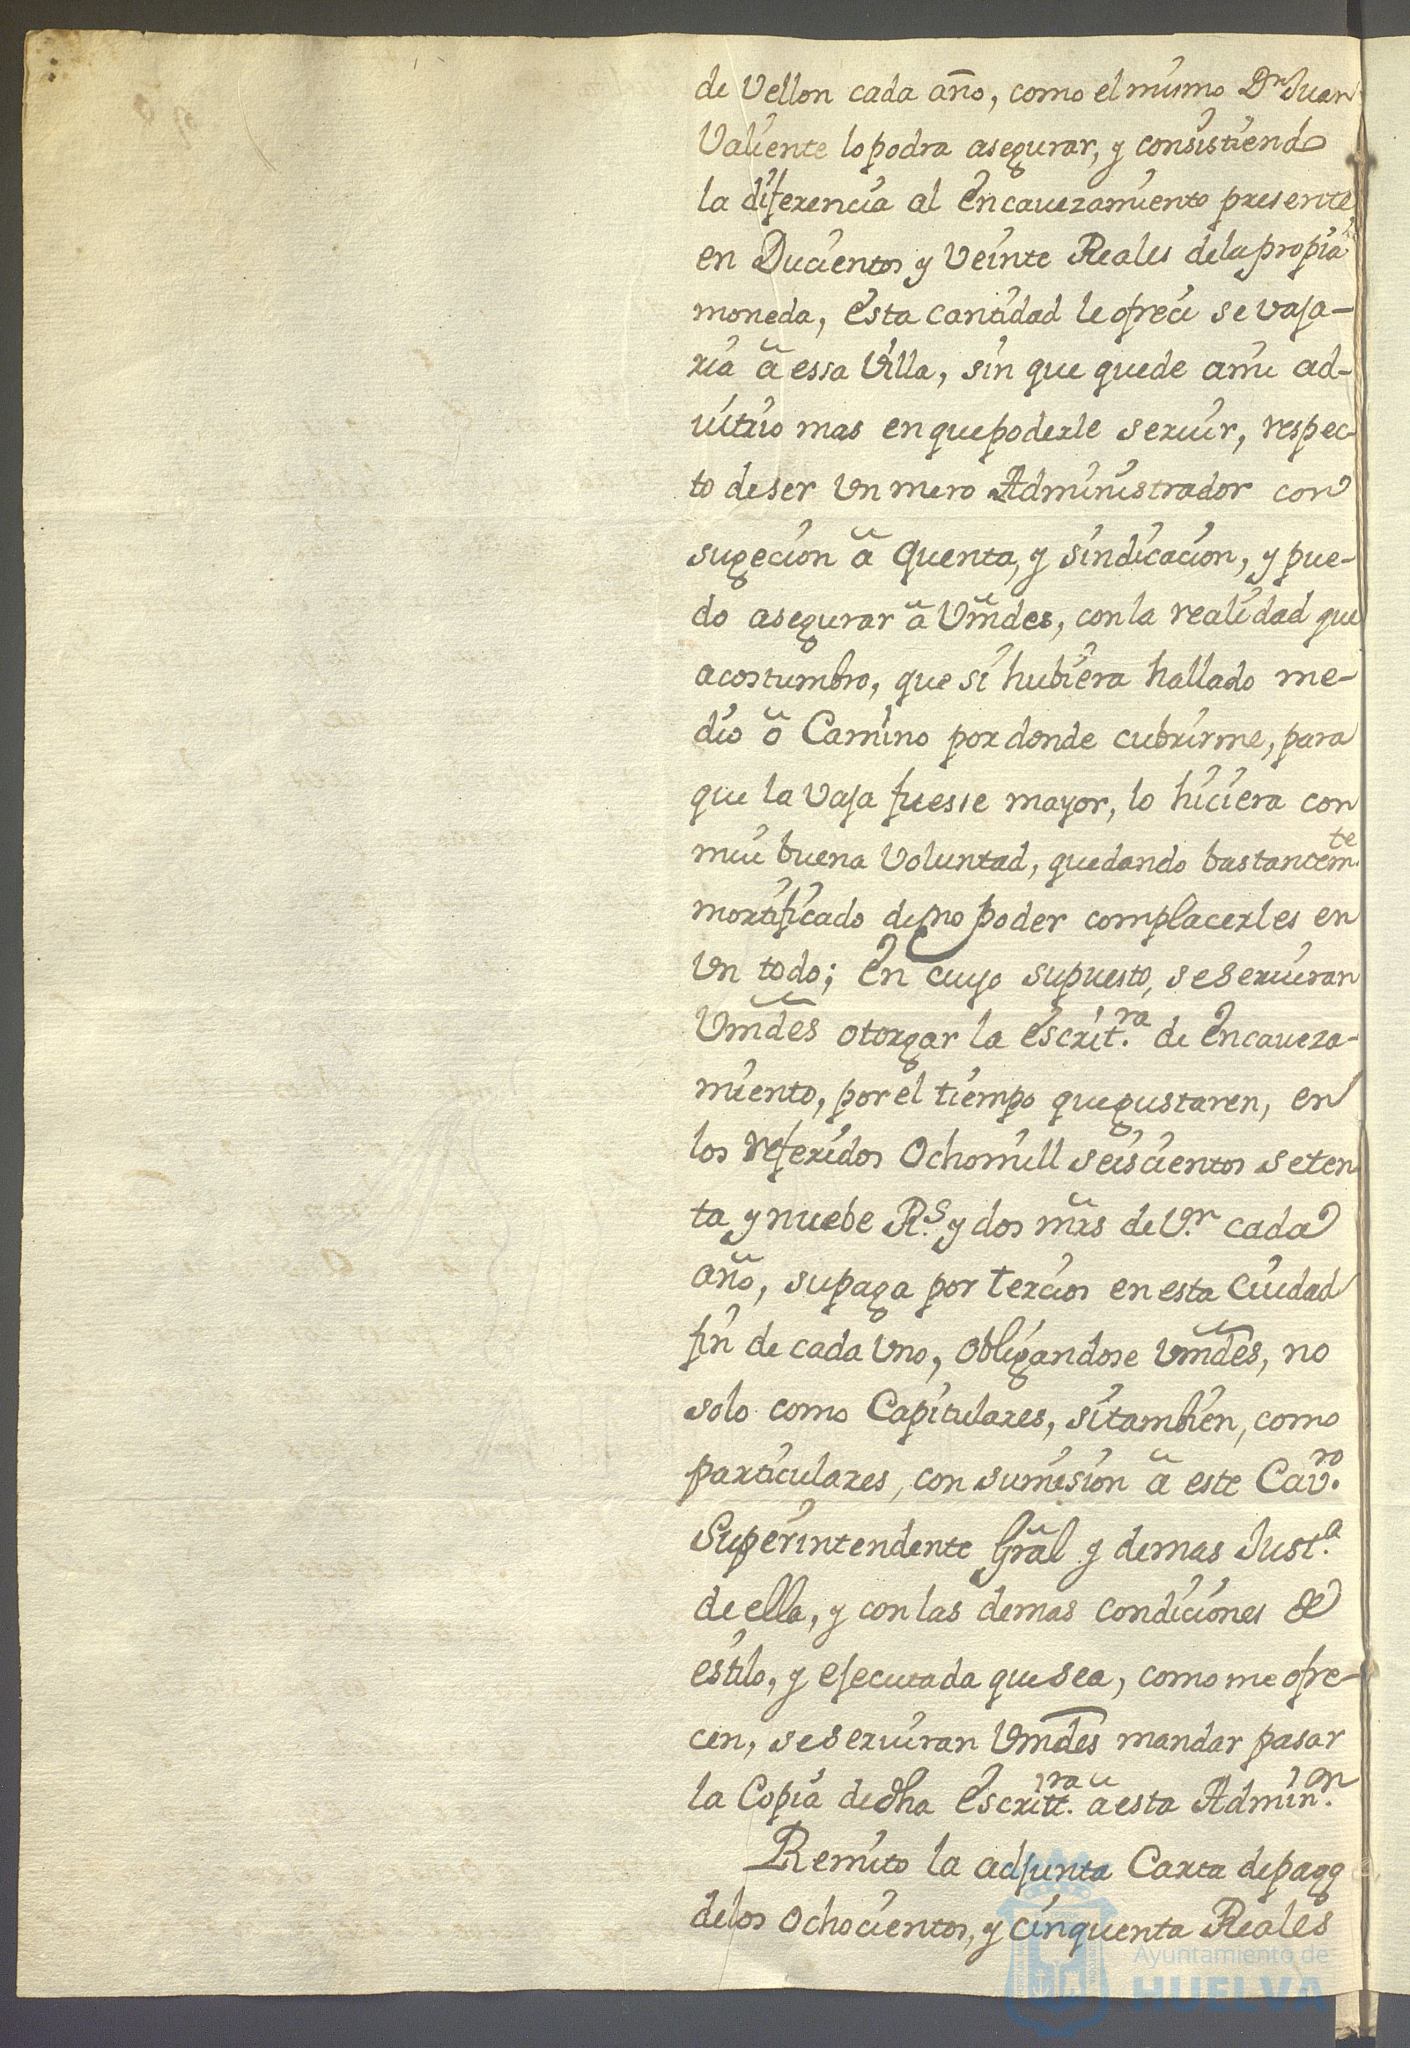 de Vellon cada año, como el mismo Dn Juan
Valiente lo podra asegurar, y consistiendo
la diferencia al encavezamiento presente
en Ducientos y Veinte Reales de la propia
moneda, esta cantidad le ofreci se vaja-
ria â essa Villa, sin que quede a mi ad-
vitrio mas en que poderle servir, respec-
to de ser Un mero Administrador con
sugecion â Quenta, y sindicacion, y pue-
do asegurar â Vmdes, con la realidad que
acostumbro, que si hubiera hallado me-
dio ô Camino por donde cubrirme, para
que la vaja fuesse mayor, lo hiciera con
mui buena Voluntad, quedando bastantemte
mortificado de no poder complacerles en
Un todo; En cuyo supuesto, se serviran
Vmdes otorgar la escritra de Encaveza-
miento, por el tiempo que gustaren, en
los referidos Ocho mill seiscientos seten
ta y nuebe Rs y dos mrs de Vn cada
año, su paga por tercios en esta Ciudad
fin de cada Uno, obligandose Vmdes, no
solo como Capitulares, si tambien, como
particulares, con sumision â este Cavro
Superintendente Gral y demas Justa
de ella, y con las demas condiciones de
estilo, y ejecutada que sea, como me ofre-
cen, se serviran Vmdes mandar pasar
la Copia de dha Escrittra â esta Adminon
Remito la adjunta Carta de pago
de los ochocientos, y cinquenta Reales
Ayuntamiento de
HUELVA